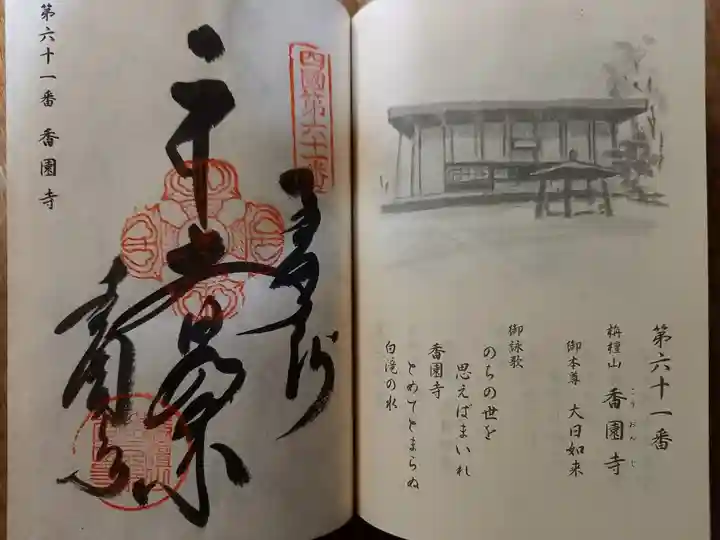 第六十一番
栴檀山 香園寺
こうおんじ
御本尊 大日如来
御詠歌
のちの世を
思えばまいれ
香園寺
とめてとまらぬ
白滝の水
四國第六十一番
奉納
香園寺
第六十一番 香園寺